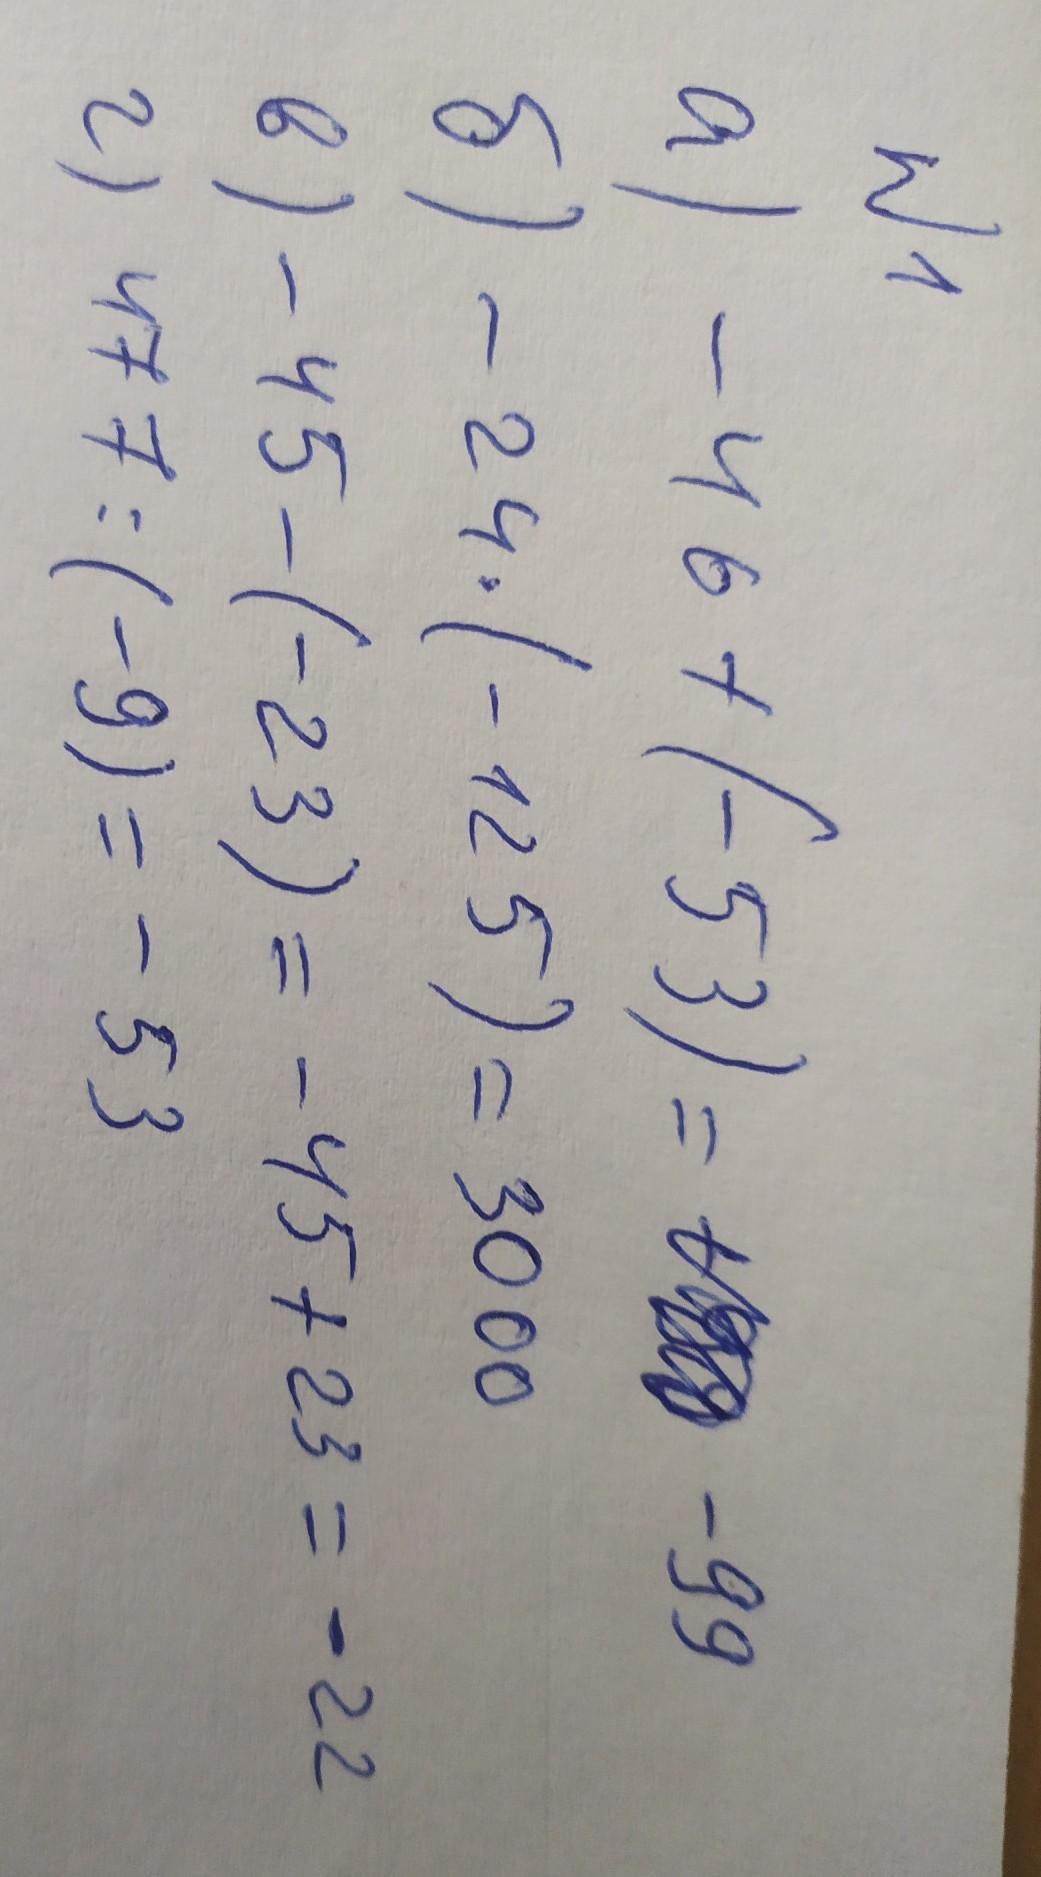 №1
а) -46+(-53)= -99
б) -24·(-125)=3000
в) -45-(-23)=-45+23=-22
г) 477:(-9)=-53